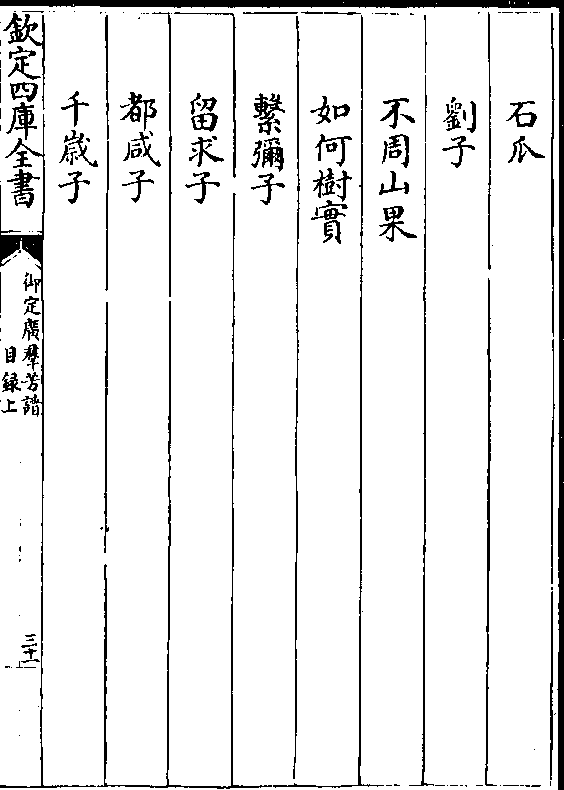 石瓜
劉子
不周山果
如何樹實
繫彌子
留求子
都咸子
千嵗子
欽定四庫全書
御定廣羣芳譜
目録上
三十一